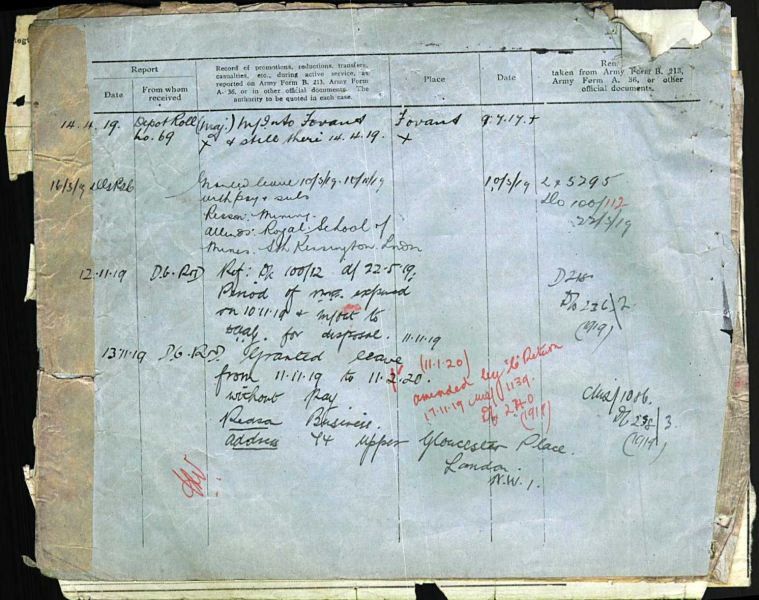 Report
Record of promotions, reductions, transfers,
casualties, etc., during active service, as
reported on Army Form B. 213, Army Form
A. 36, or in other official documents. The
authority to be quoted in each case.
Place
Date
taken from Army Form B. 213,
Army Form A. 36, or other
official documents.
Date
From whom
received
14.4.19. Depot Roll (Maj.) M/Into Fovant Fovant 9.7.17.+
No. 69 x & still there 14.4.19. x
16/5/19 Granted leave 10/5/19 10/11/19 10/5/19 5295
with pay & subs Do 100/112
Reason: Mining. 22/5/19
attends: Royal School of
Mines. Sth Kensington. London
12.11.19 Ref: Do 100/12 d/ 22.5.19,
Period of expired Do 236/2.
on 10.11.19 & M/out to (1919)
for disposal. 11.11.19
13.11.19 Granted leave (11.1.20)
from 11.11.19 to 11.2.20. amended by "C" Return
without pay 17.11.19 1139.
Do 240
(1919)
Reason Business. 1086.
Do 238/3.
(1919)
address 74 upper Gloucester Place.
London.
N.W.1.